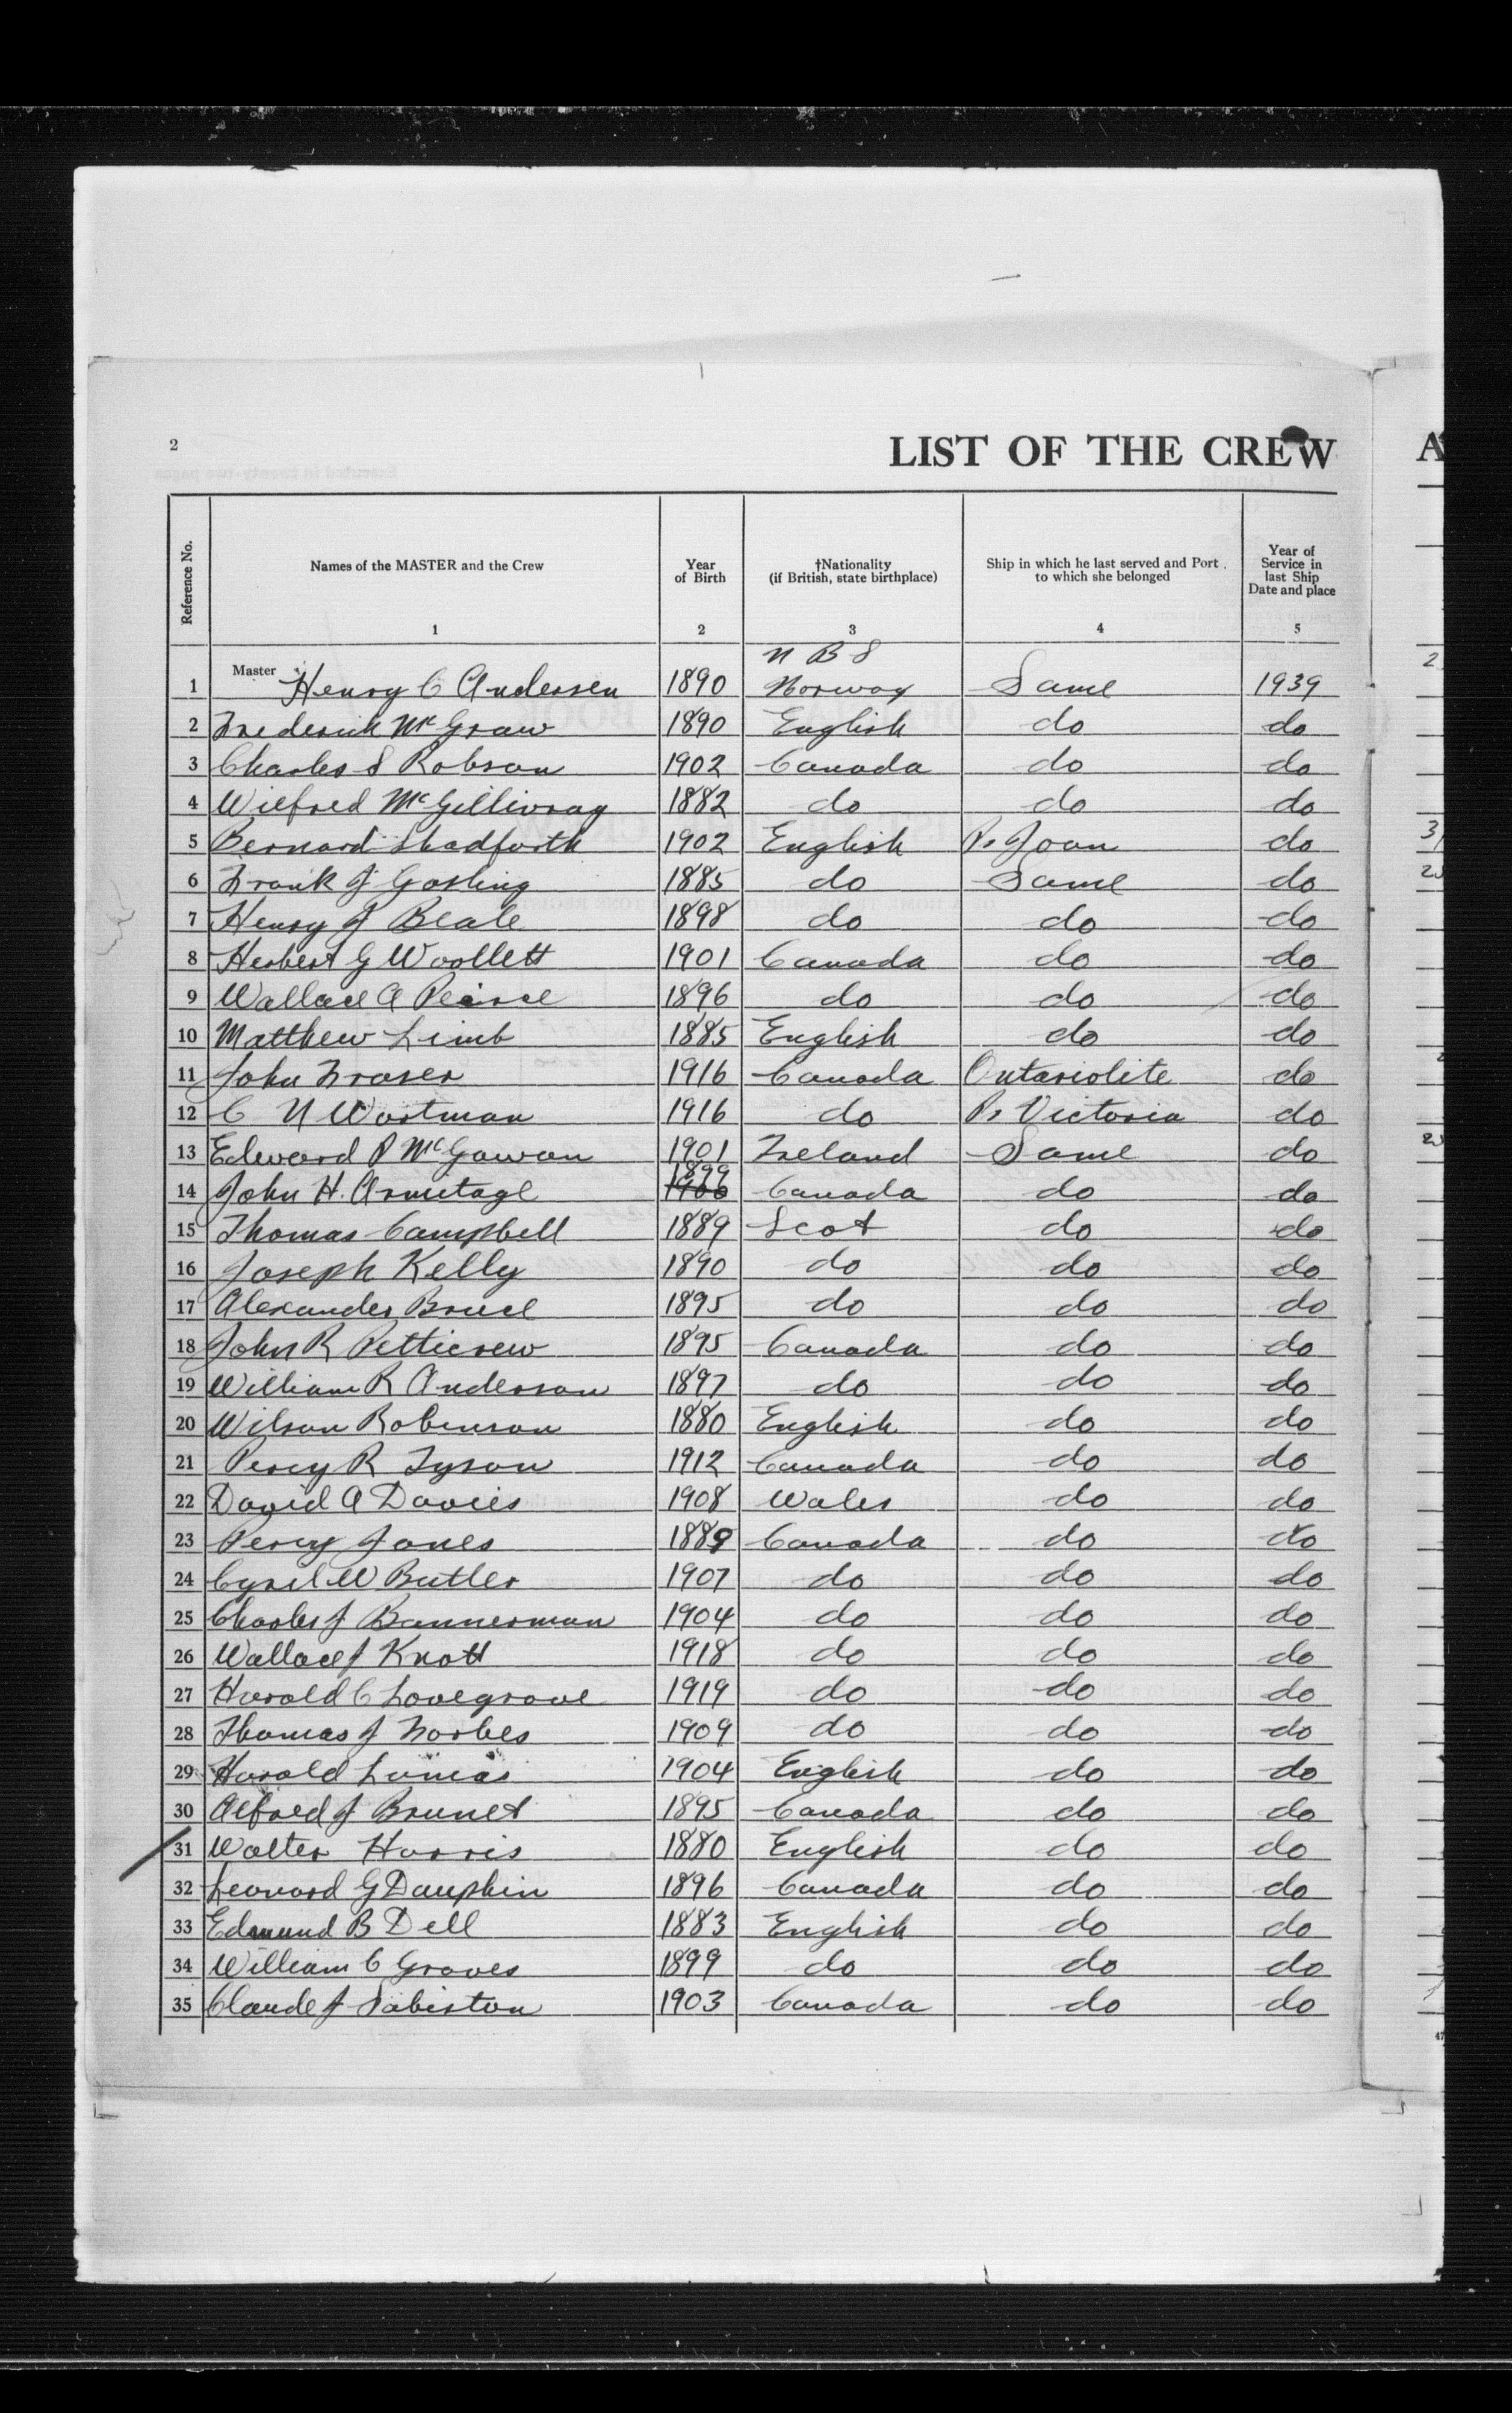 2
LIST OF THE CREW
A
Reference No.
Names of the MASTER and the Crew
Year of Birth
†Nationality (if British, state birthplace)
Ship in which he last served and Port to which she belonged
Year of Service in last Ship Date and place
1 2 3 4 5
N B S
1 Master Henry C Andersen 1890 Norway Same 1939
2 Frederick McGraw 1890 English do do
3 Charles S Robson 1902 Canada do do
4 Wilfred McGillivray 1882 do do do
5 Bernard Shadforth 1902 English Ps Joan do
6 Frank J Gosling 1885 do Same do
7 Henry J Beale 1898 do do do
8 Herbert G Woollett 1901 Canada do do
9 Wallace A Peirce 1896 do do do
10 Matthew Limb 1885 English do do
11 John Fraser 1916 Canada Ontariolite do
12 C N Wortman 1916 do Ps Victoria do
13 Edward P McGowan 1901 Ireland Same do
14 John H. Armitage 1899 1900 Canada do do
15 Thomas Campbell 1889 Scot do do
16 Joseph Kelly 1890 do do do
17 Alexander Bruce 1895 do do do
18 John R Petticrew 1895 Canada do do
19 William R Anderson 1897 do do do
20 Wilson Robinson 1880 English do do
21 Percy R Tyson 1912 Canada do do
22 David A Davies 1908 Wales do do
23 Percy Jones 1889 Canada do do
24 Cyril W Butler 1907 do do do
25 Charles J Bannerman 1904 do do do
26 Wallace J Knott 1918 do do do
27 Harold C Lovegrove 1919 do do do
28 Thomas J Forbes 1909 do do do
29 Harold Lomas 1904 English do do
30 Alfred J Brunet 1895 Canada do do
31 Walter Harris 1880 English do do
32 Leonard G Dauphin 1896 Canada do do
33 Edmund B Dell 1883 English do do
34 William C Groves 1899 do do do
35 Claude J Sabiston 1903 Canada do do